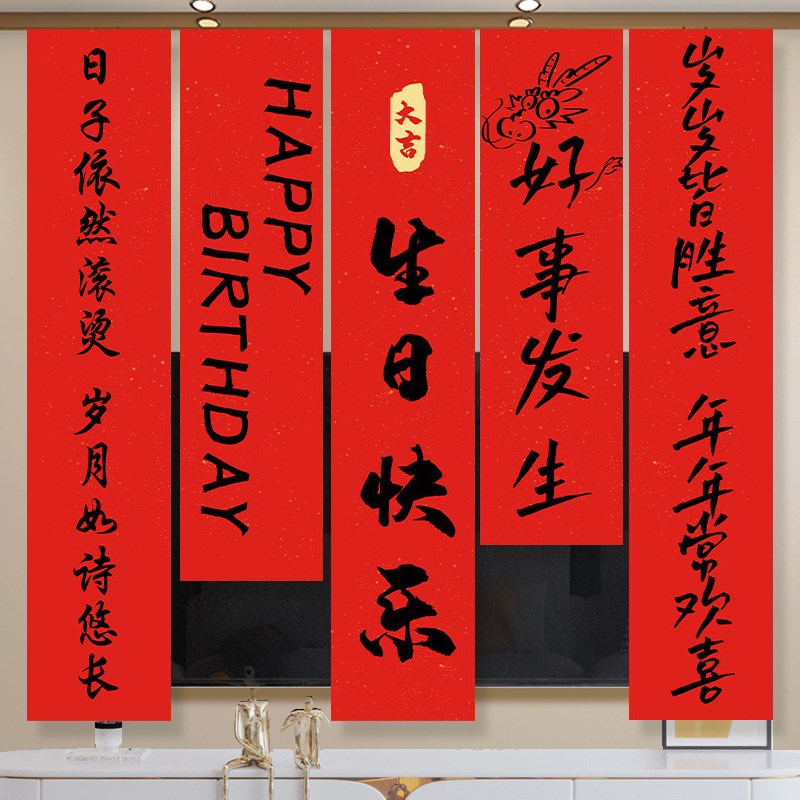 日子依然滚烫 岁月如诗悠长
HAPPY
BIRTHDAY
大吉
生日快乐
好事发生
岁岁皆胜意 年年常欢喜